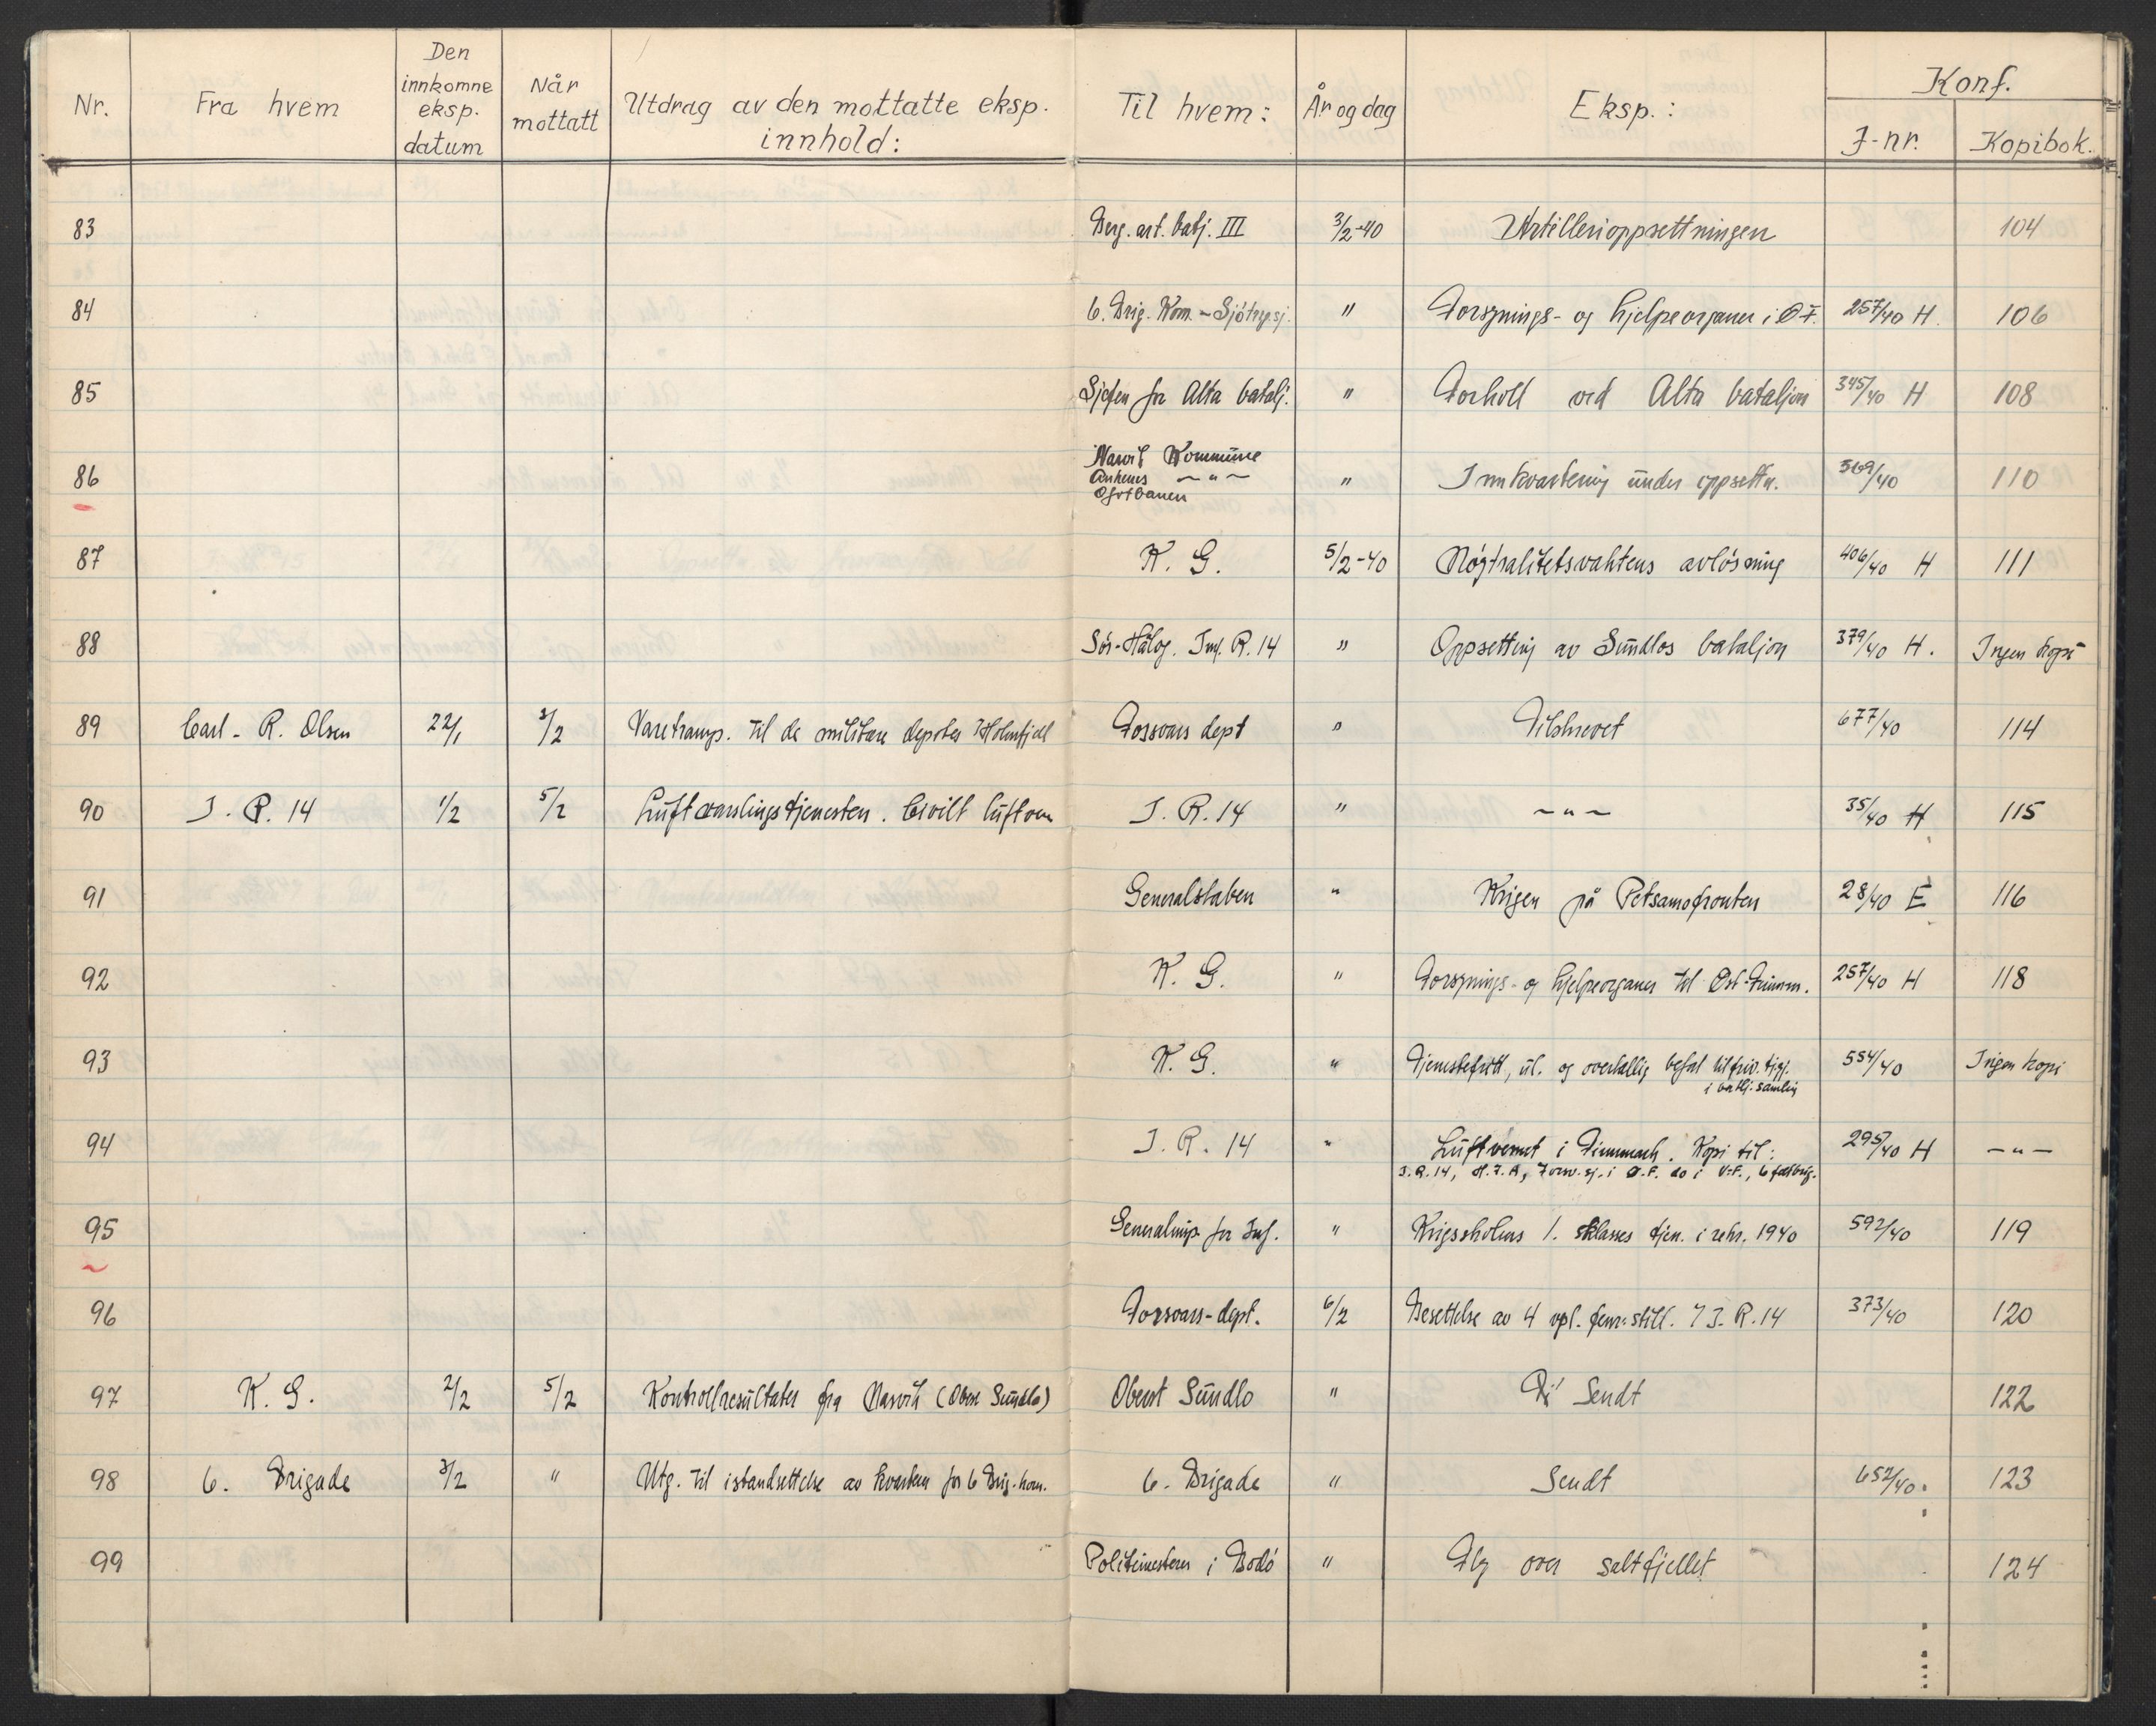 Nr. Fra hvem Den innkomne eksp. datum Når mottatt Utdrag av den mottatte eksp. innhold: Til hvem: År og dag Eksp.: Konf. J-nr. Kopibok.
83 Berg. art. batj. III 3/2-40 Artillerioppsettningen 104
84 6. Brig. Kom. - " Forsynings- og hjelpeorganer i Ø.F. 257/40 H. 106
85 Sjefen for Alta batalj. " Forhold ved Alta bataljon 345/40 H 108
86 Narvik Kommune
Ankenes - " -
Ofotbanen " Innkvartering under oppsettn. 369/40 110
87 K. G. 5/2-40 Nøytralitetsvaktens avløsning 406/40 H 111
88 Sør-Hålog. Inf. R. 14 " Oppsetting av Sundlos bataljon 379/40 H. Ingen kopi
89 Carl - R. Olsen 22/1 3/2 Varetransp. til de militære depoter Holmfjell Forsvars dept " Tilskrevet 677/40 114
90 I. R. 14 1/2 5/2 Luftvarslingstjenesten. Civilt luftvern I. R. 14 " - " - 35/40 H 115
91 Generalstaben " Krigen på Petsamofronten 28/40 E 116
92 K. G. " Forsynings- og hjelpeorganer til Øst-Finnm. 257/40 H 118
93 K. G. " Tjenestefritt, ul. og overtallig befal til friv. tjgj.
i batlj. samling 554/40 Ingen kopi
94 I. R. 14 " Luftvernet i Finnmark. Kopi til: 295/40 H - " -
I.R. 14, i Ø.F. do i V-F., 6 feltbrig.
95 Generalinsp. for Inf. " Krigsskolens 1. klasses tjen. i rekr. 1940 592/40 119
96 Forsvars-dept. 6/2 Besettelse av 4 vpl. fenr. still. I. R. 14 373/40 120
97 K. G. 2/2 5/2 Kontrollresultater fra Narvik (Oberst Sundlo) Oberst Sundlo " Til Sendt 122
98 6. Brigade 3/2 " Utg. til istandsettelse av kvarter for 6 Brig. kom. 6. Brigade " Sendt 652/40. 123
99 Politimesteren i Bodø " Fly over Saltfjellet 124